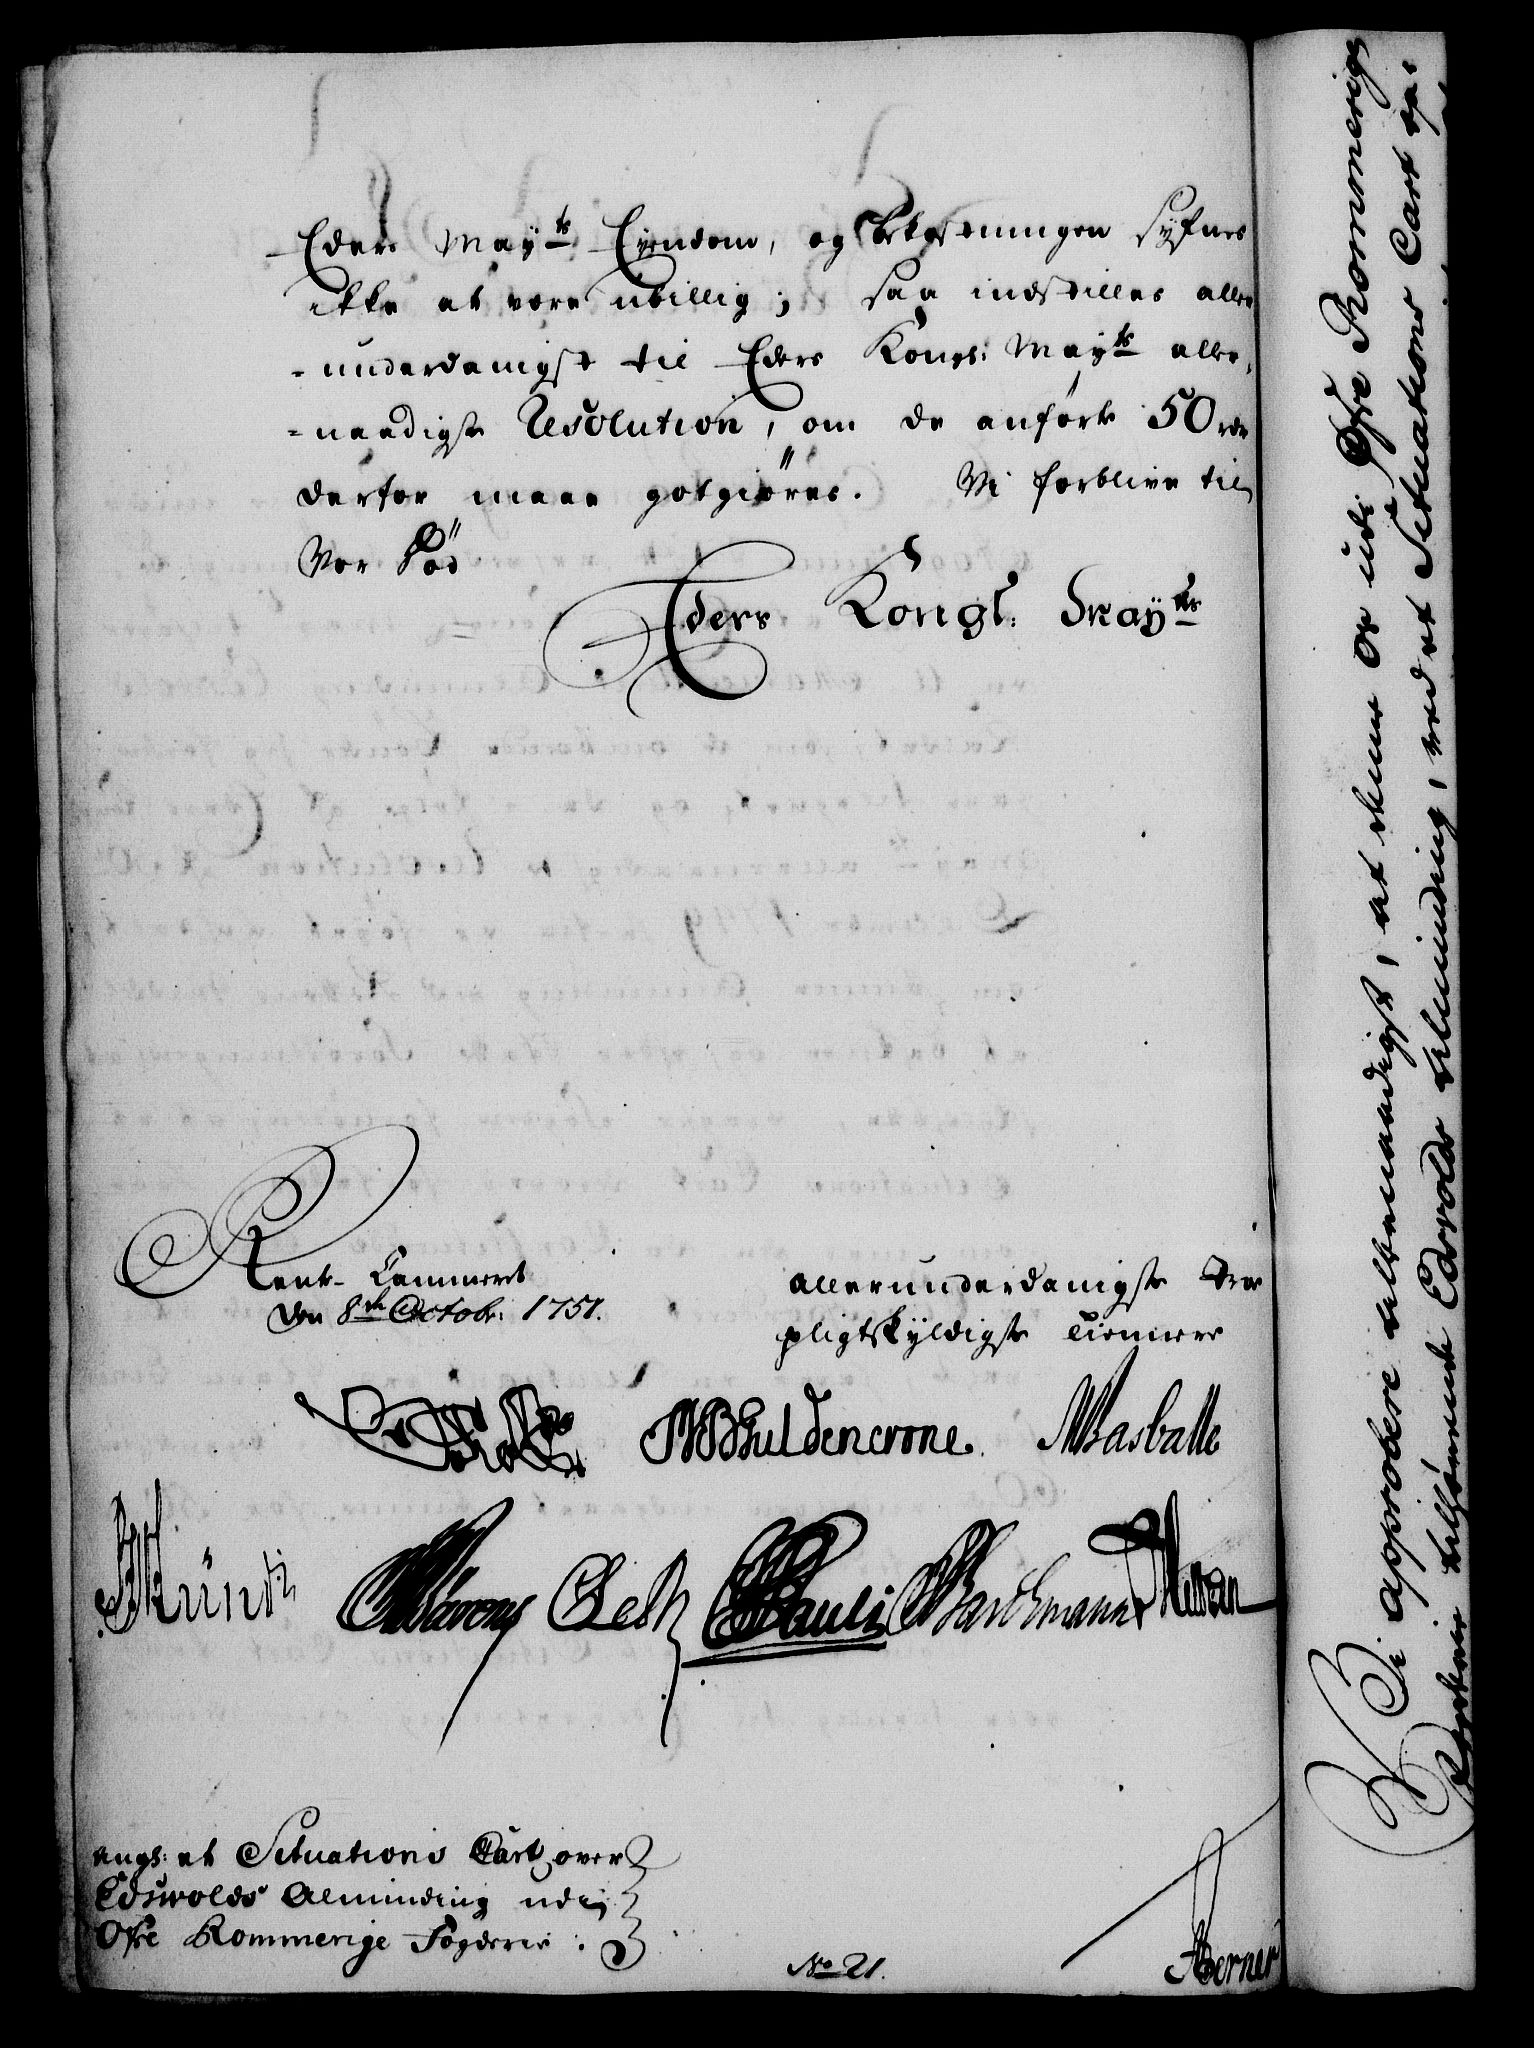 Eders Mayts Eyendom, og Bekostningen synes
ikke at være ubillig; saa indstilles aller
-underdanigst til Eders Kongl: Mayts aller-
-naadigste Resolution, om de anførte 50 rdr
derfor maae godtgiøres. Vi forblive til
Vor Død
Eders Kongl: Mayts
Rente-Cammeret
den 8de Octobr: 1751.
allerunderdanigste Troe
pligtskyldigste Tienere
Güldencrone. Basballe
Lesk Pauli Barchmann
ang: et Situations Cart over
Edswolds Alminding udi
Øfre Rommerige Fogderie.
No 21.
Berner
Vi approbere allernaadigst, at denne os udi Øfre Rommerige
Fogderie tilhørende Edsvolds Alminding, ved et Situations Cart